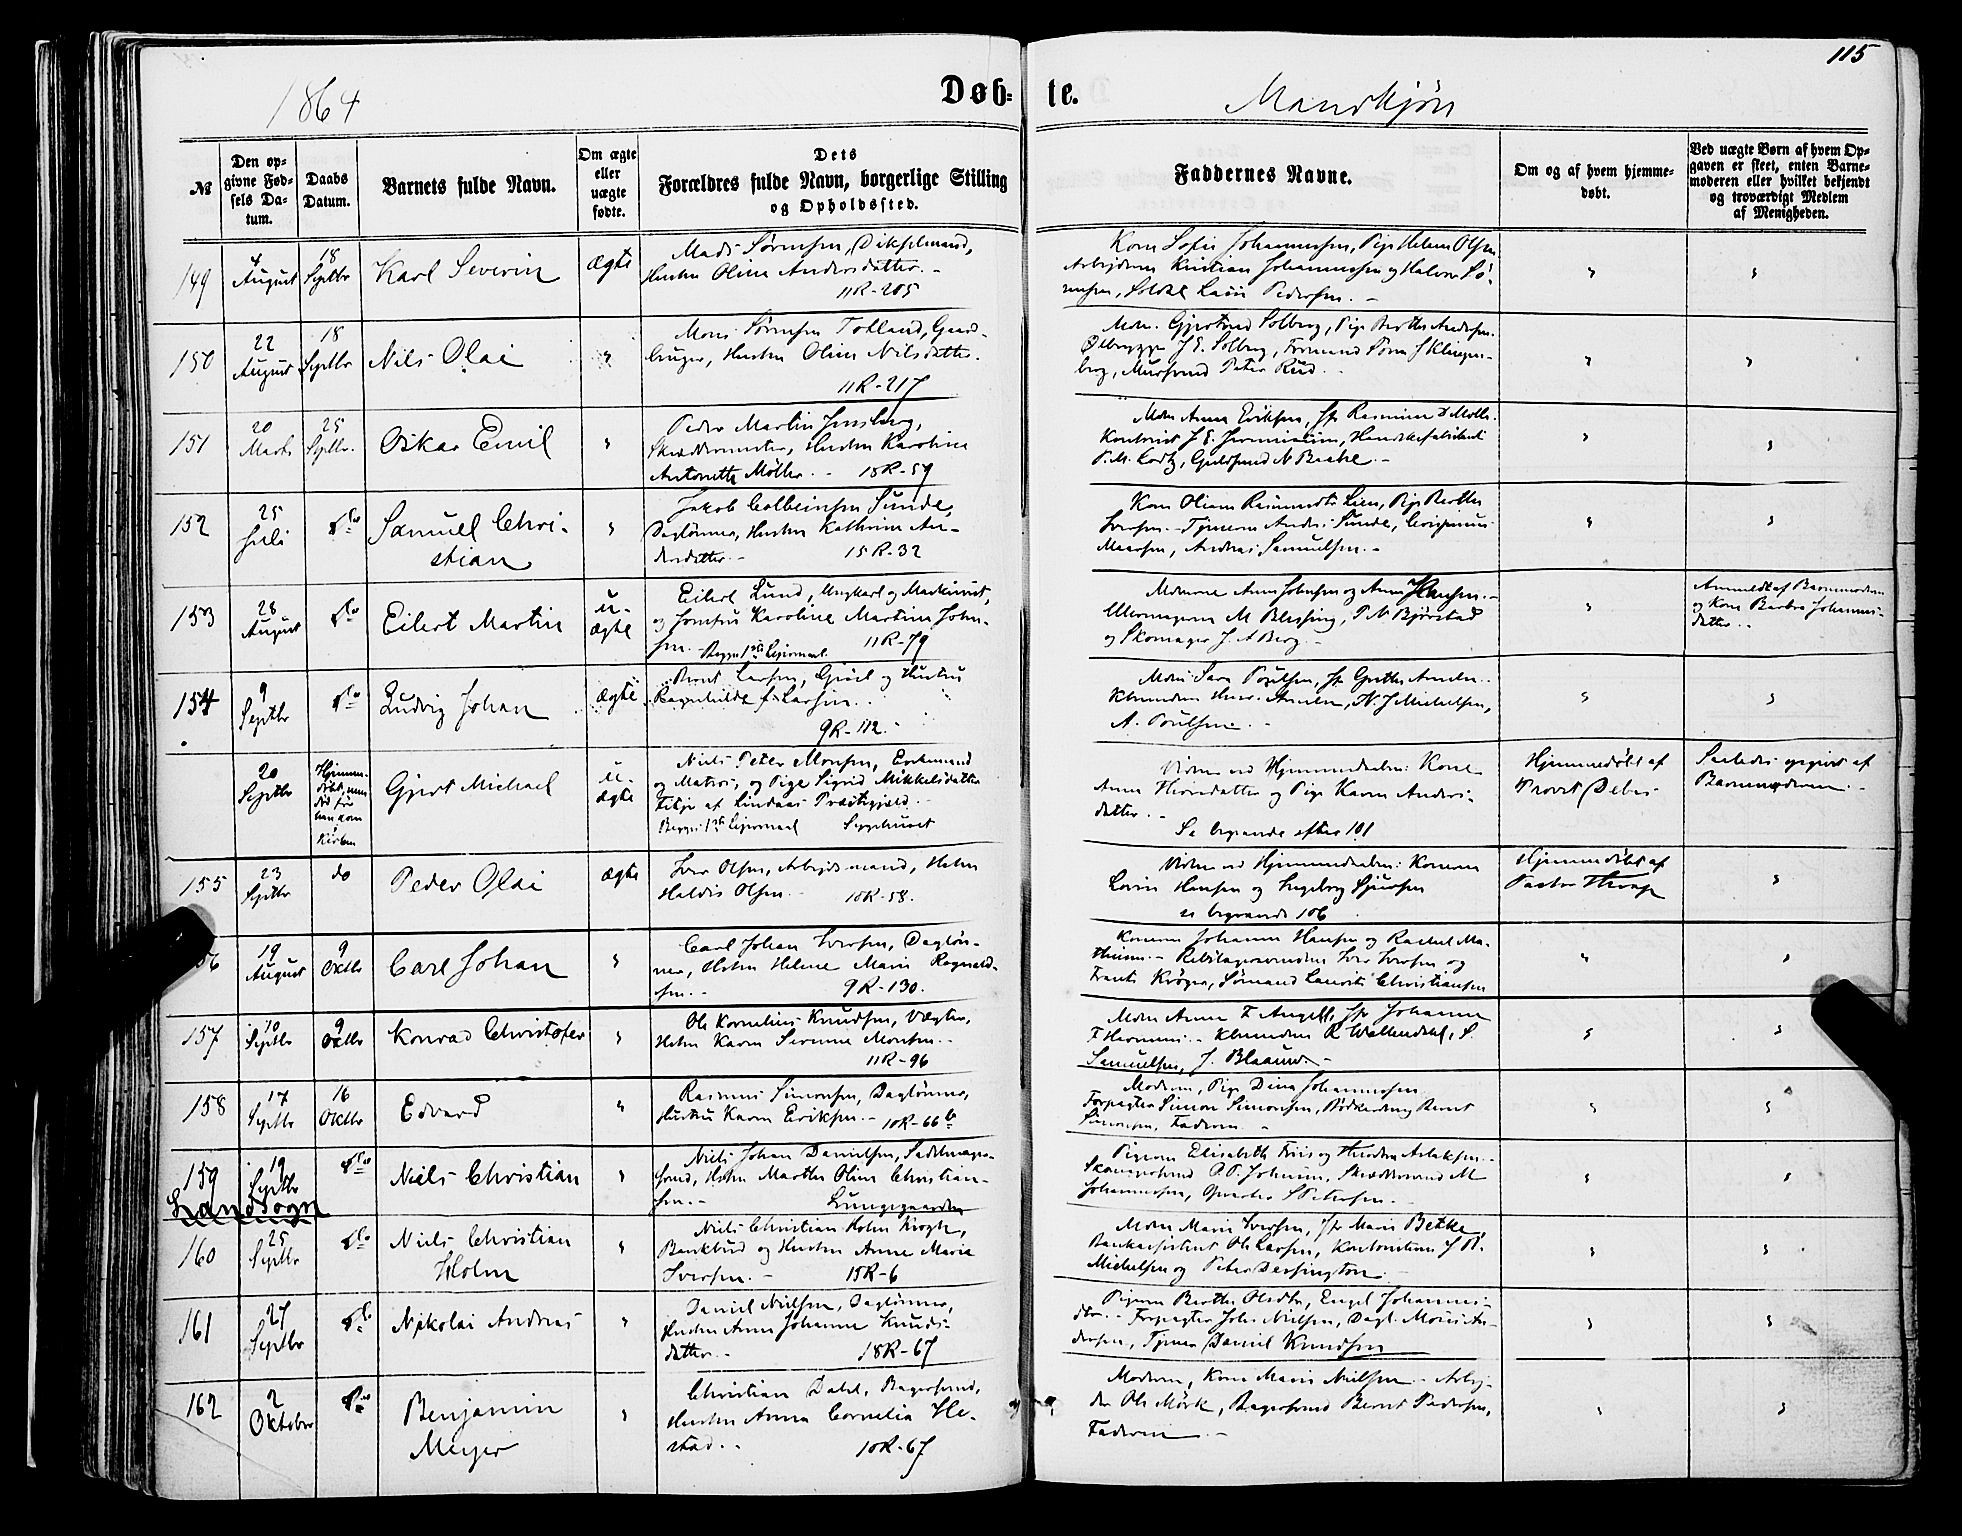 115
1864
Døb- te.
Mandkjøn
№
Den op-
givne Fød-
sels Da-
tum.
Daabs
Datum.
Barnets fulde Navn.
Om ægte
eller
uægte
fødte.
Dets
Forældres fulde Navn, borgerlige Stilling
og Opholdssted.
Faddernes Navne.
Om og af hvem hjemme-
døbt.
Ved uægte Børn af hvem Op-
gaven er skeet, enten Barne-
moderen eller hvilket bekjendt
og troværdigt Medlem
af Menigheden.
149
4
August
18
Septbr
Karl Severin
ægte
Mads Sørensen,
Hustru Oline Andersdatter. -
11R-205
Kone Sofie Johannessen, Pige Helene Olsen
Arbeiderne Kristian Johannessen og
Pedersen. -
150
22
August
18
Septbr
Nils Olai
"
Mons Sørensen Totland, Gaard-
bruger, Hustru Oline Nilsdatter.
11R-217
Mdm. Solberg, Pige Berthe Andersen.
Ølbrygger J E. Solberg, Formand
Murersvend Peter Rud.
151
20
Marts
25
Septbr.
Oskar Emil
"
Peder Martin Jensberg,
Skræddermester, Hustru Karoline
Antonette Møller. - 18R-59
Mdm Anna Eriksen, Jfr Rasmine D Møller.
Kontorist J. E.
Guldsmed N Brekke. -
152
25
Juli
do
Samuel Chri-
stian
"
Jakob Colbeinsen Sunde,
Daglønner, Hustru Kathrine An-
dersdatter. - 15R-32
Kone Oliane Rasmusdtr Lien, Pige Berthe
Iversen. - Anders Sunde,
Andreas Samuelsen. -
153
28
August
do
Eilert Martin
u-
ægte
Eilert Lund, Ungkarl og Maskinist,
og Jomfru Karoline Martine John-
sen. - Begges 1ste Leiermaal. 11R-79
Madamerne Anne Johnsen og Anne Hansen. -
Uhrmagerne M Blessing, P. N Bjørstad
og Skomager J. A Berg. -
Anmeldt af Barnemoderen
og Kone Barbra Johannes-
datter. -
154
9
Septbr
do
Ludvig Johan
ægte
Bernt Larsen, og Hustru
Ragnhilde f. Larsen. -
9R-112.
Mdm: Sara Poulsen, Jfr Grethe
N. J Michelsen,
A. Poulsen. -
20
Septbr
Hjemme-
døbt, men
død før
han kom
i
Kirken
Gjert Michael
u-
ægte
Niels Peter Monsen, Enkemand
og Matros, og Pige Sigrid Mikkelsdatter
af Lindaas Præstegjæld. -
Begges 1ste Leiermaal Sygehuset
Vidner ved Hjemmedaaben: Kone
Anne datter og Pige Karen Anders-
datter. -
Se begravede efter 101
Hjemmedøbt af
Provst Debes
Saaledes opgivet af
Barnemoderen. -
155
23
Septbr
do
Peder Olai
ægte
Iver Olsen, Arbeidsmand, Hustru
Haldis Olsen. - 10R-58.
Vidner ved Hjemmedaaben: Konerne
Hansen og Ingeborg Sjursen
se begravede 106
Hjemmedøbt af
Pastor
"
19
August
9
Oktbr
Carl Johan
"
Carl Johan Iversen, Dagløn-
ner, Hustru Helene Marie Ragnvald-
sen. - 9R-130.
Konerne Johanne Hansen og Rachel Ma-
thisen. - Iver Iversen og
Frants Krøger, Sømand Laurits Christiansen
157
10
Septbr
9
Oktbr
Konrad Christofer
"
Ole Kornelius Knudsen, Vægter,
Hustru Karen Severine Monsen. -
11R-96
Mdm Anne F. Angell, Jfr Johanne
S.
Samuelsen, J. Blaauw. -
158
17
Septbr
16
Oktbr
Edvard
"
Rasmus Simonsen, Daglønner,
Hustru Karen Eriksen. - 10R-66b
Moderen, Pige Dina Johannessen
Forpagter Simon Simonsen, Bernt
Simonsen, Faderen. -
159
19
Septbr
do
Niels Christian
"
Niels Johan Danielsen, Sadelmager-
svend, Hustru Marthe Oline Christian-
sen. - Lungegaarden
Pigerne Elisabeth Friis og
Skomagersvend P. P. Johnsen, Skræddersvend M
Johannessen, Petersen. -
Landsogn
160
25
Septbr
do
Niels Christian
Holm
"
Niels Christian Holm Krogh,
Bankbud og Hustru Anne Marie
Iversen. - 15R-6
Mdm Marie Iversen, Jfr Marie Betke,
Bankassistent Ole Larsen, Kontoristerne J. R.
Michelsen og Peter Dessington. -
161
27
Septbr
do
Nikolai Andreas
"
Daniel Nielsen, Daglønner,
Hustru Anne Johanne Knuds-
datter. - 18R-67
Pigerne Berthe Olsdtr, Engel Johannes-
dtr. - Forpagter Johs Nielsen, Dagl. Mons An-
dersen, Daniel Knudsen
162
2
Oktober
do
Benjamin
Meyer
"
Christian Dahl, Bagersvend,
Hustru Anna Cornelia He-
stad. - 10R-67
Moderen, Kone Marie Nielsen - Arbei-
der Ole Mørk, Bagersvend Bernt Pedersen,
Faderen. -